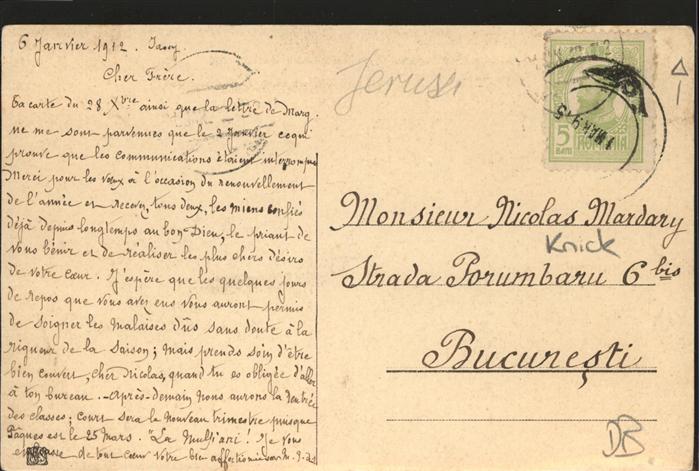 6 Janvier 1912. Jassy
Cher Frère.
Ta carte du 28 Xbre ainsi que la lettre de Marg.
ne me sont parvenues que le 2 Janvier ce qui
prouve que les communications étaient interrompues
Merci pour les vœux à l'occasion du renouvellement
de l'année et recevez, tous deux, les miens confiés
déjà depuis longtemps au bon Dieu, le priant de
vous bénir et de réaliser les plus chers désirs
de votre cœur. J'espère que les quelques jours
de repos que vous avez eus vous auront permis
de soigner les malaises dûs sans doute à la
rigueur de la saison; mais prends soin d'être
bien couvert, cher Nicolas, quand tu es obligée d'aller
à ton bureau. - Après-demain nous aurons la rentrée
des classes; court sera le nouveau trimestre puisque
Pâques est le 25 Mars. "La mulți ani! Je vous
embrasse de tout cœur votre bien affectionnée sœur M.
Jerus
5
BANI
ROMANIA
Monsieur Nicolas Mardary
Knick
Strada Porumbaru 6 bis
Bucureşti
DB